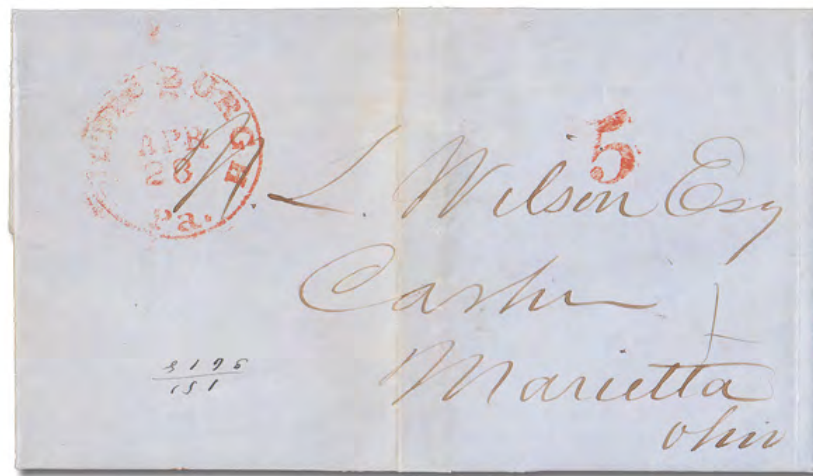 PITTSBURGH
APR
28
Pa.
5
N. L. Wilson Esq
Cashr
Marietta
Ohio
151